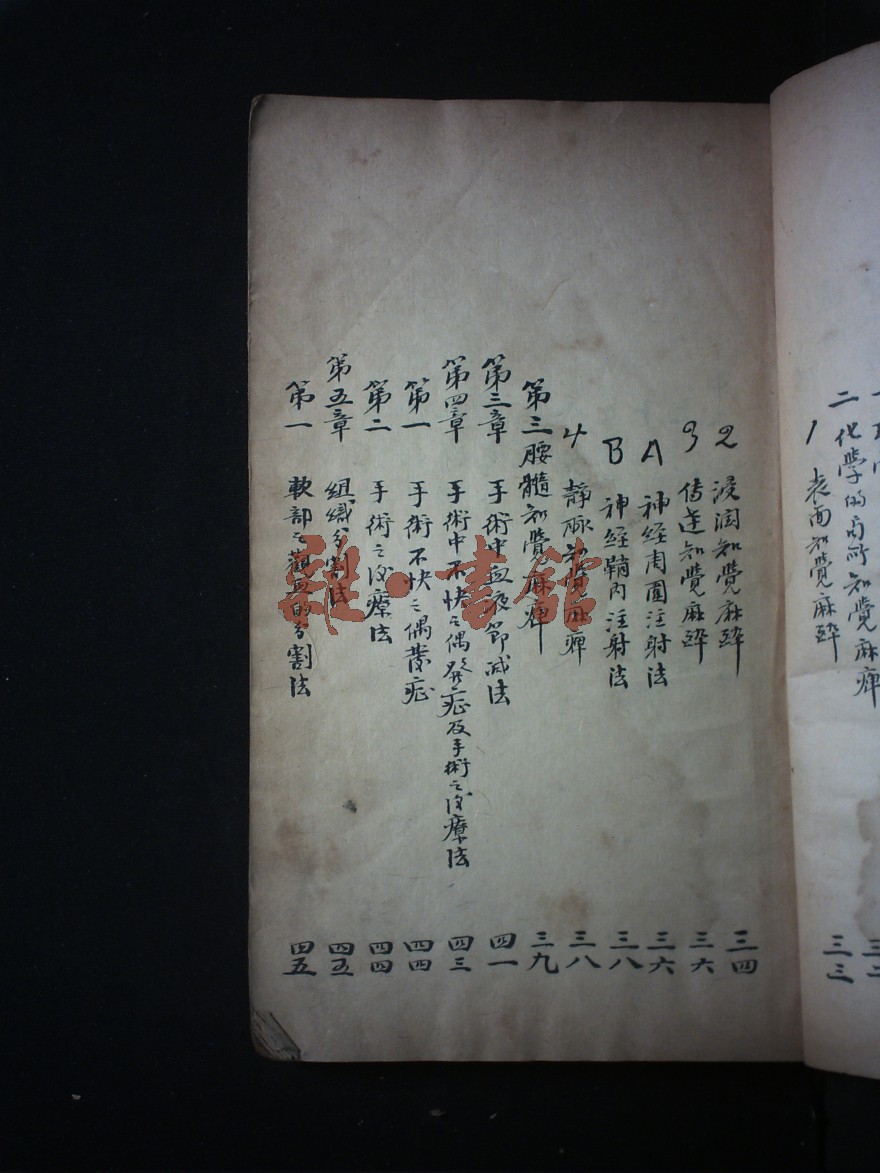 二 化學的局所知覺麻痺 三二
1 表面知覺麻醉 三三
2 浸潤知覺麻醉 三四
3 传達知覺麻醉 三六
A 神经周圍注射法 三六
B 神经鞘内注射法 三八
4 靜脈知覺麻痺 三八
第三 腰髓知覺麻痺 三九
第三章 手術中血液節减法 四一
第四章 手術中不快之偶発症及手術之後療法 四三
第一 手術不快之偶發症 四四
第二 手術之後療法 四四
第五章 組織分割法 四五
第一 軟部之觀血的分割法 四五
雜·書館